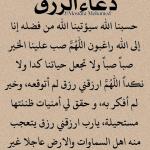 دعاء الرزق
حسبنا الله سيؤتينا الله من فضله إنا
إلى الله راغبون اللَّهُمَّ صب علينا الخير
صباً صباً ولا تجعل حياتنا كدا ولا
نكداً اللَّهُمَّ ارزقني رزق لم أتوقعه، وخير
لم أفكر به، و حقق لي أمنيات ظننتها
مستحيلة، يارب ارزقني رزق يتعجب
منه اهل السماوات والارض عاجلا غير